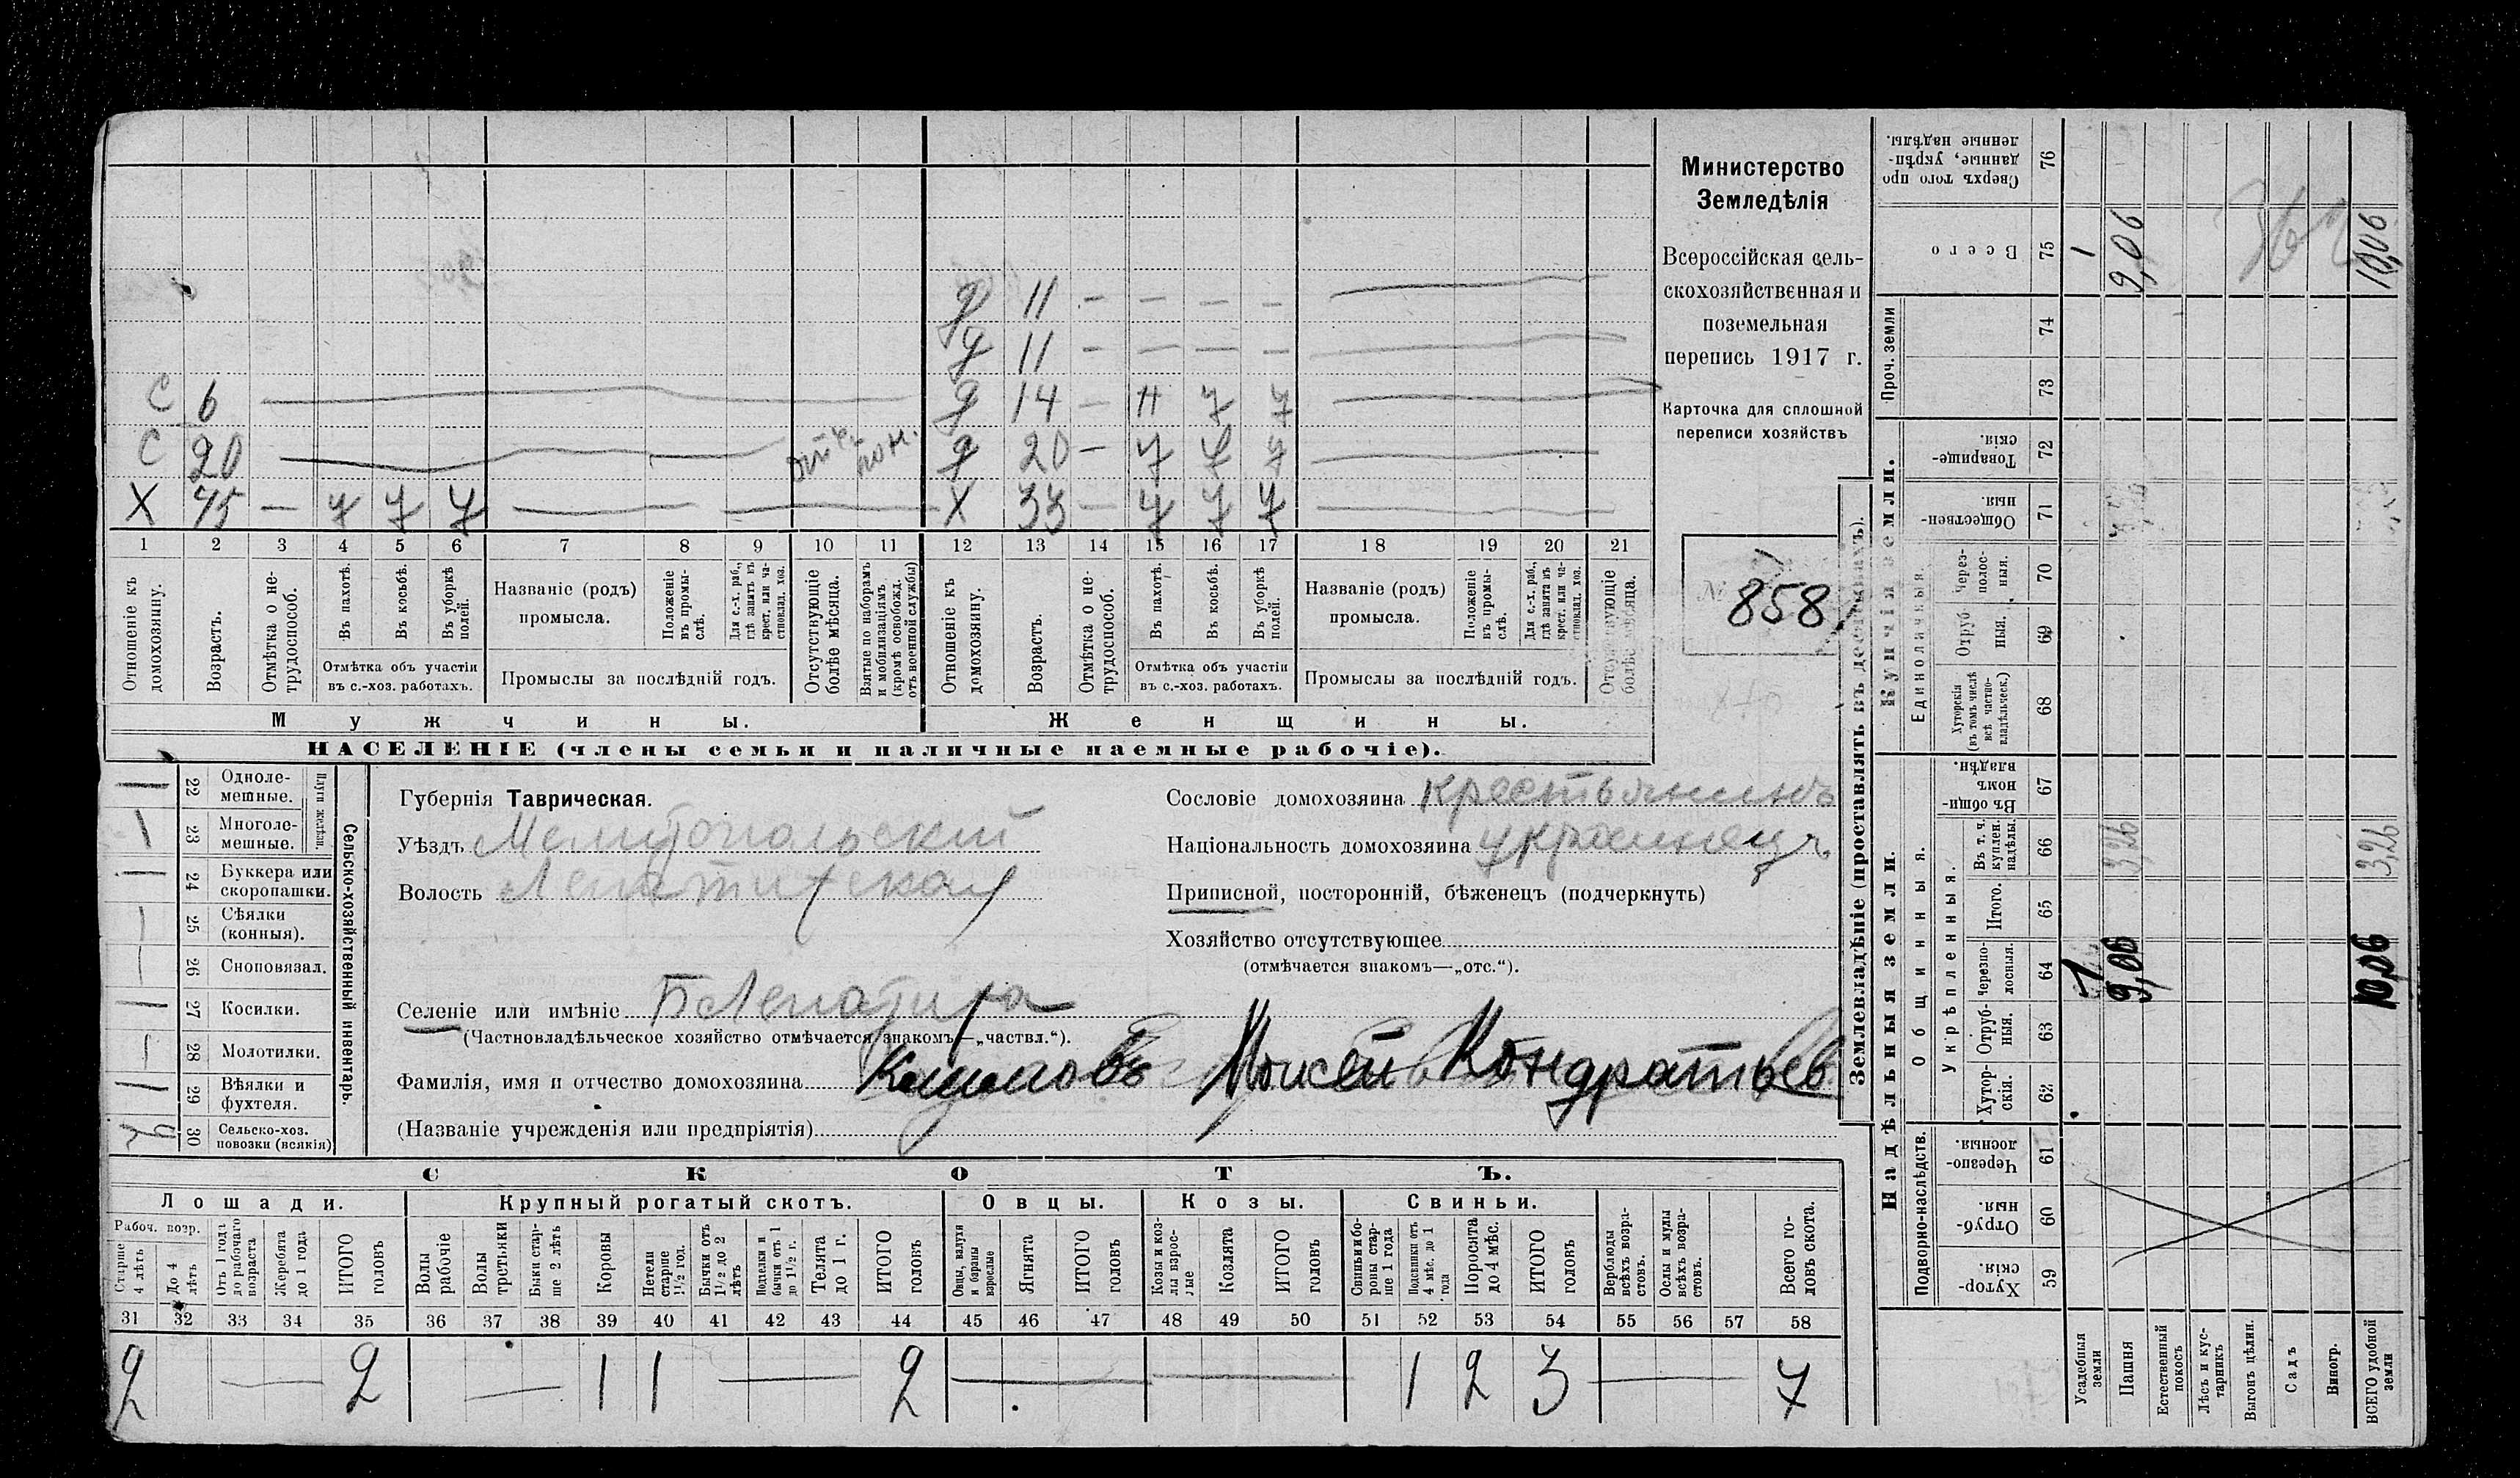 д 11 - - - - -
д 11 - - - - -
С 6 - д 14 - н у у -
С 20 - отъ. пон. д 20 - у у у -
Х 45 - у у у - - Х 33 - у у у -
1 2 3 4 5 6 7 8 9 10 11 12 13 14 15 16 17 18 19 20 21
Отношеніе къ домохозяину.
Возрастъ.
Отмѣтка о не-трудоспособ.
Въ пахотѣ.
Въ косьбѣ.
Въ уборкѣ полей.
Отмѣтка объ участіи
въ с.-хоз. работахъ.
Названіе (родъ)
промысла.
Положеніе въ промы-слѣ.
Для с.-х. раб., гдѣ занятъ въ крест. или ча-стновлад. хоз.
Промыслы за послѣдній годъ.
Отсутствующіе болѣе мѣсяца.
Взятые по наборамъ и мобилизаціямъ (кромѣ освобожд. отъ военной службы)
Отношеніе къ домохозяину.
Возрастъ.
Отмѣтка о не-трудоспособ.
Въ пахотѣ.
Въ косьбѣ.
Въ уборкѣ полей.
Отмѣтка объ участіи
въ с.-хоз. работахъ.
Названіе (родъ)
промысла.
Положеніе въ промы-слѣ.
Для с.-х. раб., гдѣ занятъ въ крест. или ча-стновлад. хоз.
Промыслы за послѣдній годъ.
Отсутствующіе болѣе мѣсяца.
Мужчины.
Женщины.
НАСЕЛЕНІЕ (члены семьи и наличные наемные рабочіе).
Министерство
Земледѣлія
Всероссійская сель-
скохозяйственная и
поземельная
перепись 1917 г.
Карточка для сплошной
переписи хозяйствъ
№ 858
Сельско-хозяйственный инвентарь.
Плуги желѣзн.
22 Одноле-
мешные.
23 Многоле-
мешные.
24 Буккера или
скоропашки.
25 Сѣялки
(конныя).
26 Сноповязал.
27 Косилки.
28 Молотилки.
29 Вѣялки и
фухтеля.
30 Сельско-хоз.
повозки (всякія)
Губернія Таврическая.
Уѣздъ Мелитопольскій
Волость Лепатихская
Селеніе или имѣніе Б Лепатиха
(Частновладѣльческое хозяйство отмѣчается знакомъ—„частвл.“).
Фамилія, имя и отчество домохозяина Мокѣй Кондратьев
(Названіе учрежденія или предпріятія)
Сословіе домохозяина крестьянинъ
Національность домохозяина украинецъ
Приписной, посторонній, бѣженецъ (подчеркнуть)
Хозяйство отсутствующее
(отмѣчается знакомъ—„отс.“).
СКОТЪ.
Лошади. Крупный рогатый скотъ. Овцы. Козы. Свиньи.
Рабоч. возр.
Старше 4 лѣтъ
До 4 лѣтъ
Отъ 1 года до рабочаго возраста
Жеребята до 1 года
ИТОГО головъ
Волы рабочіе
Волы третьяки
Быки стар-ше 2 лѣтъ
Коровы
Нетели старше 1 1/2 год.
Бычки отъ 1 1/2 до 2 лѣтъ
Подтелки и бычки отъ 1 до 1 1/2 г.
Телята до 1 г.
ИТОГО головъ
Овцы, валухи и бараны взрослые
Ягнята
ИТОГО головъ
Козы и коз-лы взрос-лые
Козлята
ИТОГО головъ
Свиньи и бо-ровы стар-ше 1 года
Подсвинки отъ 4 мѣс. до 1 года
Поросята до 4 мѣс.
ИТОГО головъ
Верблюды всѣхъ возра-стовъ.
Ослы и мулы всѣхъ возра-стовъ.
Всего го-ловъ скота.
31 32 33 34 35 36 37 38 39 40 41 42 43 44 45 46 47 48 49 50 51 52 53 54 55 56 57 58
2 — 2 — 1 1 — 2 — — 1 2 3 — 7
Землевладѣніе (проставлять въ десятинахъ).
Надѣльныя земли.
Купчія земли.
Проч. земли
Подворно-наслѣдств.
Общинныя.
Укрѣпленныя.
Единоличныя.
Хутор-скія. 59
Отруб-ныя. 60
Черезпо-лосныя. 61
Хутор-скія. 62
Отруб-ныя. 63
Черезпо-лосныя. 64
Итого. 65
Въ т. ч. куплен. надѣлы. 66
Въ общин-номъ владѣн. 67
Хуторскія (въ томъ числѣ всѣ частно-владѣльческ.) 68
Отруб ныя. 69
Через-полос-ныя. 70
Обществен-ныя. 71
Товарище-скія. 72
73
74
Всего 75
Сверхъ того про данные, укрѣп-ленные надѣлы. 76
Усадебныя земли 1 1
Пашня 9,06 3,26 9,06
Естественный покосъ
Лѣсъ и кус-тарникъ
Выгонъ цѣлин.
Садъ
Виногр.
ВСЕГО удобной земли 10,06 3,26 10,06